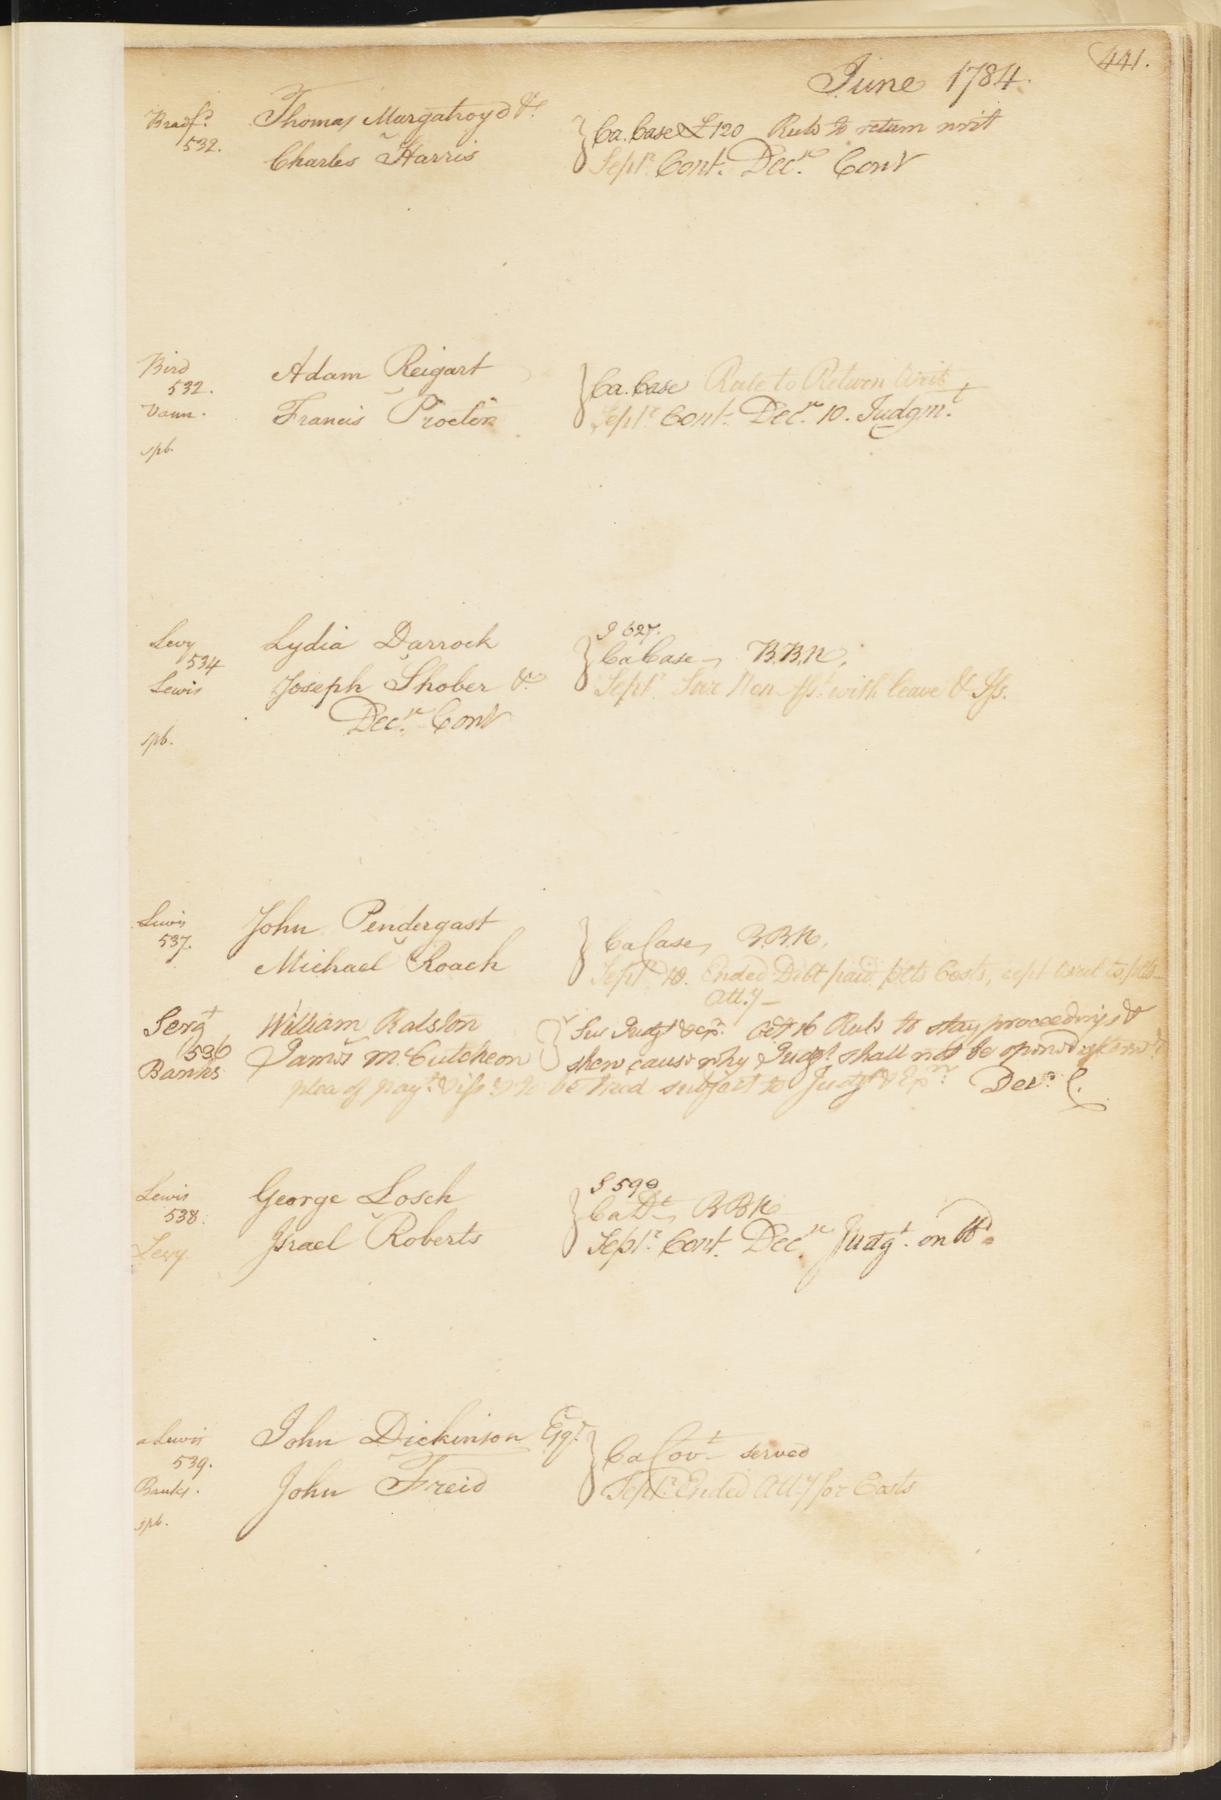 441.
June 1784.
Bradf.d Thomas Murgatroyd &c.
532. Ca. Case £120 Rule to return writ
Charles Harris Sept.r Cont. Dec.r Cont
Bird Adam Reigart
532. Ca. Case Rule to Return Writ
Vann. Francis Proctor Sept.r Cont. Dec.r 10. Judgm.t
spb.
S 627.
Levy Lydia Darrock
534 Ca Case B.B.N.
Lewis Joseph Shober &c Sept.r Non Ass.t with leave & Iss.
Dec.r Cont
spb.
Lewis John Pendergast
537. Ca Case B.B.N.
Michael Roach Sept.r 10. Ended Debt paid Costs,
Att.y
Serg.t William Ralston Sur Judg.t & exn. Oct 16 Rule to stay proceedings &
536
Banks James McCutcheon shew cause why Judg.t shall not be opened
plea of pay.t & iss. to be tried subject to Judg.t & Exn. Dec.r C.
S 590
Lewis George Losch
538. Ca D.t B B N
Levy Israel Roberts Sept.r Cont. Dec.r Judg.t on
Lewis John Dickinson Esq.r
539. Ca Cov.t served
Banks. John Freid Sept.r Ended Att.y for Costs
spb.